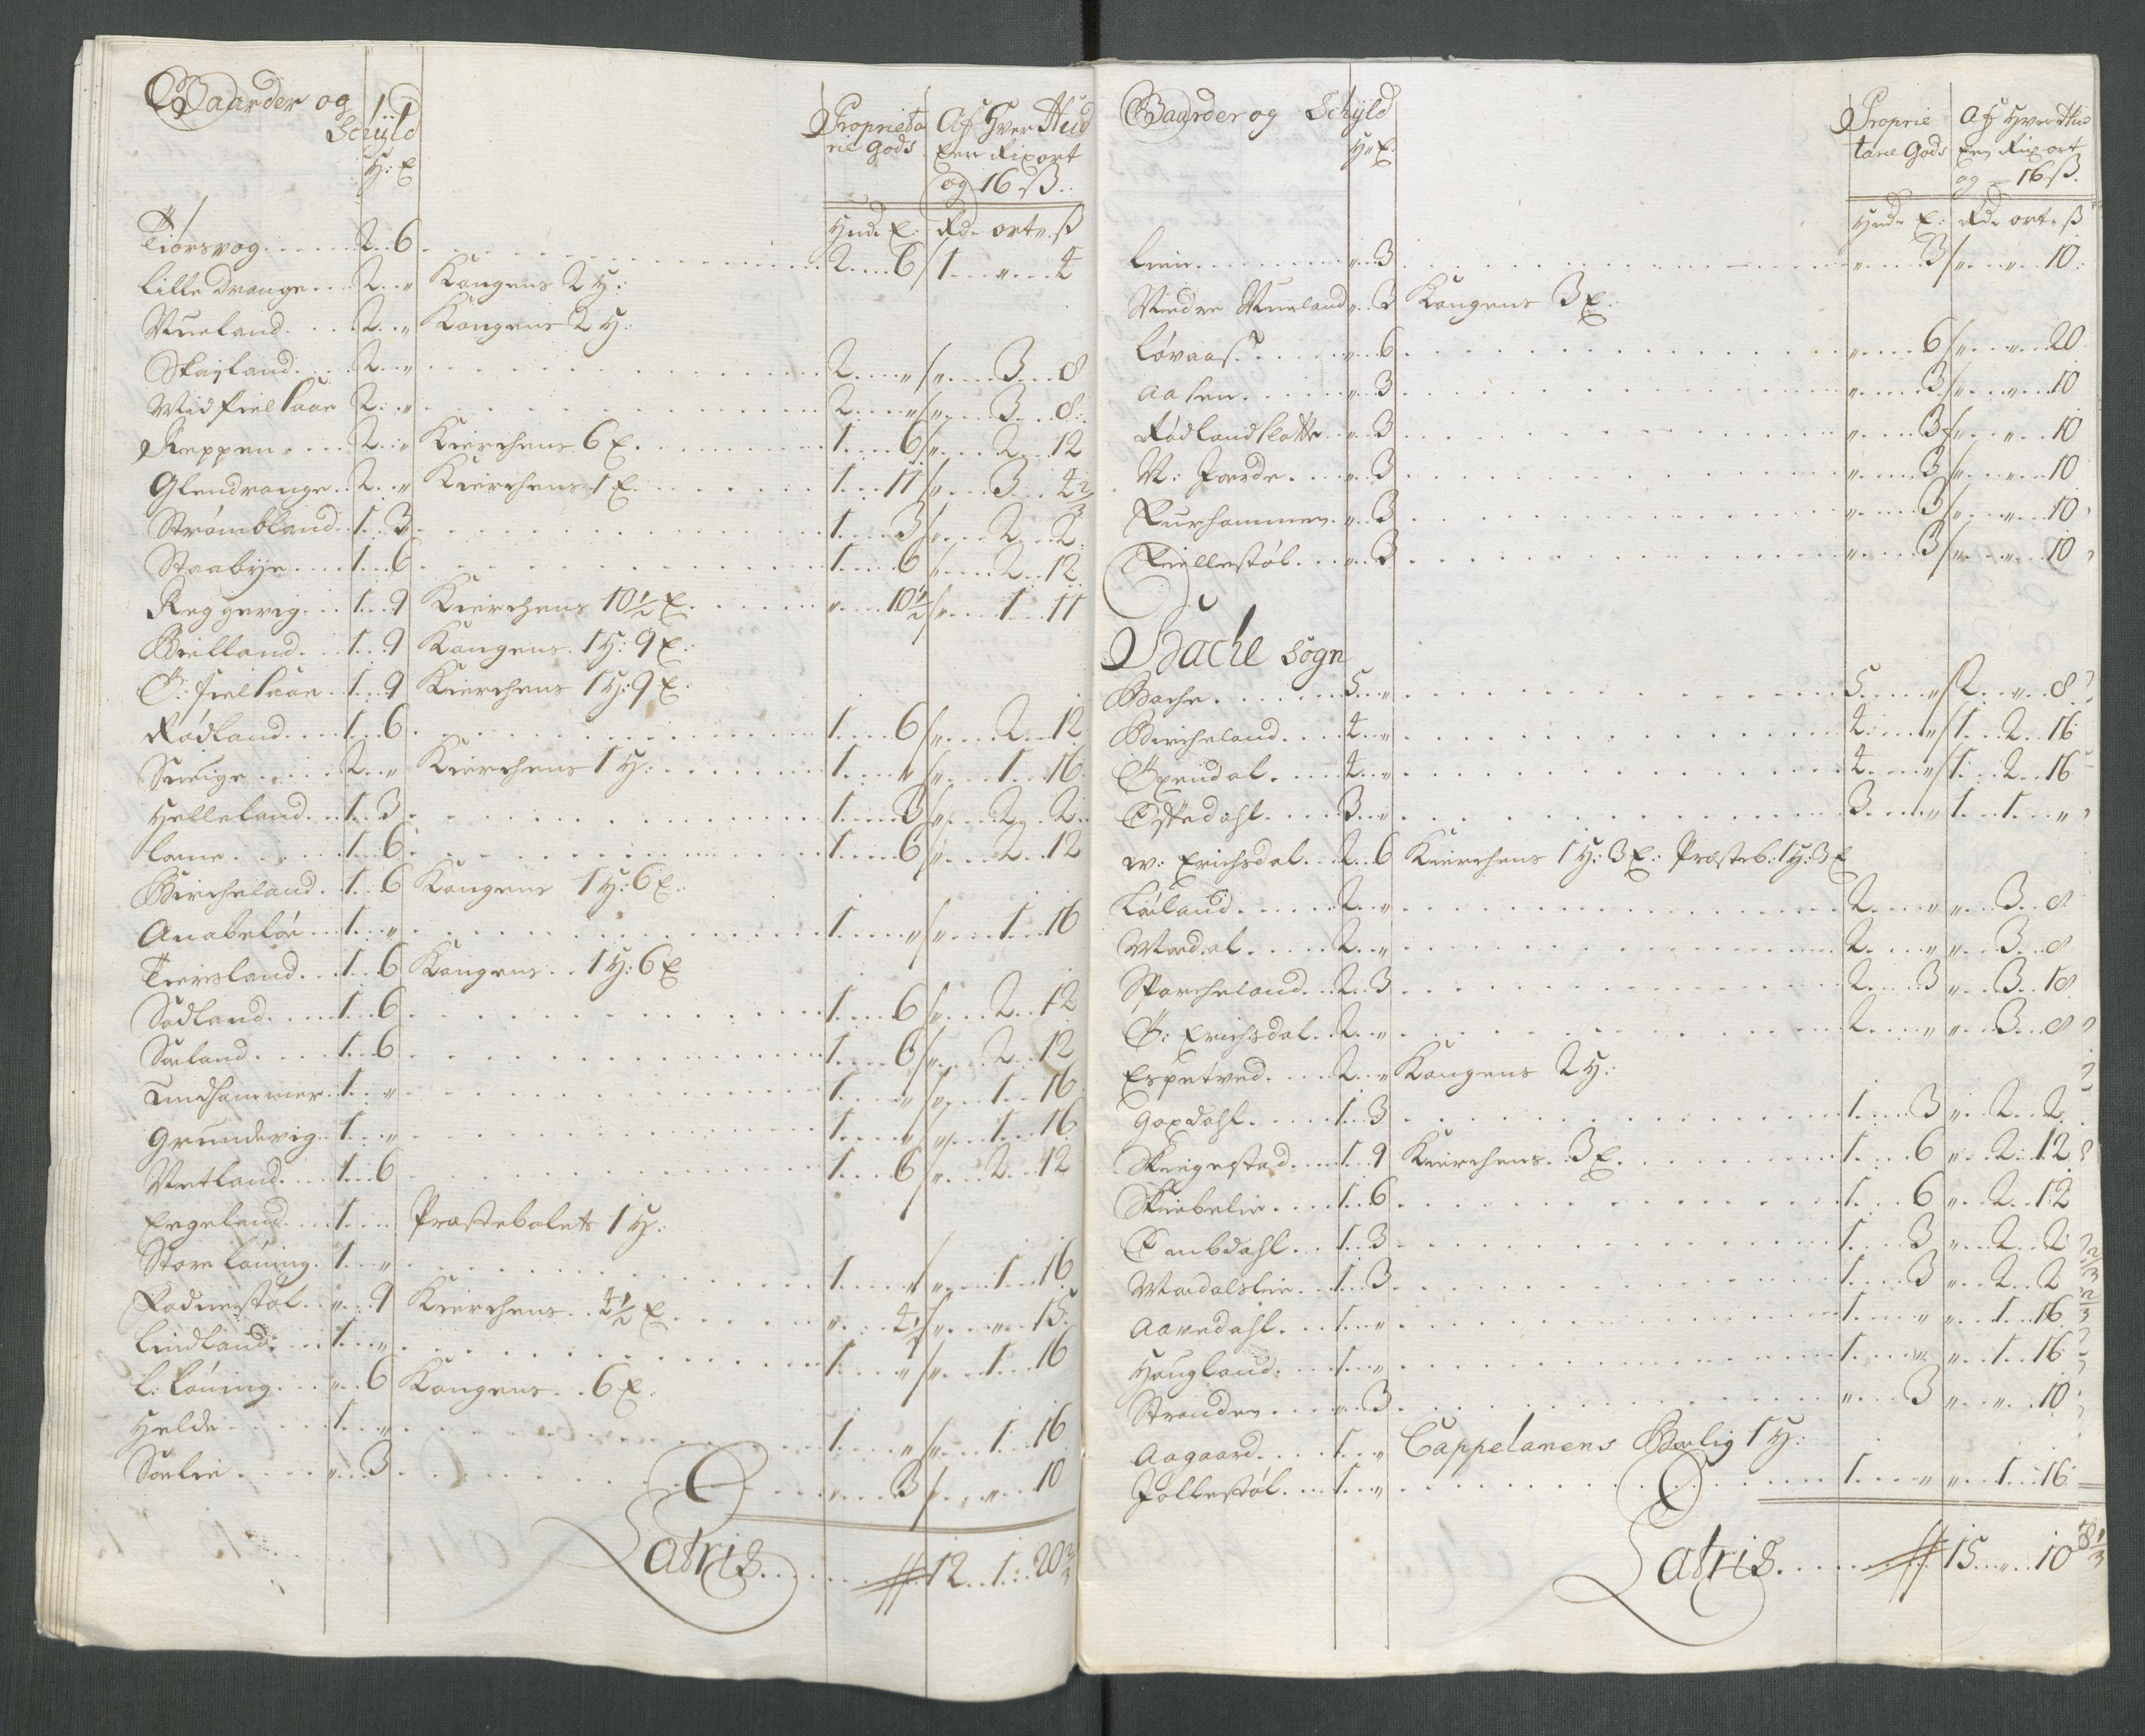 Gaarder og Schyld
H: £
Proprieta
rie Gods
Af Hver Hud
Een Rixort
og 16 ß..
Hud £: Rd. ort. ß
Tiørsvog ..... 2..6 ..... 2....6 / 1...."....4
Lille Drange ... 2.." Kongens 2 H:
Nueland .... 2.." Kongens 2 H:
Skagland .... 2.." ..... 2...." / "....3...8
Midfielsaae 2.." ..... 2...." / "....3...8:
Reppen .... 2.." Kierchens 6 £. ..... 1....6 / "....2...12
Glendrange .. 2.." Kierchens 1 £. ..... 1....11 / "....3...4 2/3
Strømbland .. 1..3 ..... 1....3 / "....2...2:
Staabye .... 1..6 ..... 1....6 / "....2...12
Reggevig ... 1..9 Kierchens 10 1/2 £. ..... "....10 1/2 / "....1...11
Bielland ... 1..9 Kongens 1 H: 9 £:
Ø: fielsaae . 1..9 Kierchens 1 H: 9 £:
Rødland .... 1..6 ..... 1....6 / "....2...12
Sveige ..... 2.." Kierchens 1 H: ..... 1...." / "....1...16:
Helleland .. 1..3 ..... 1....3 / "....2...2..
Lome ..... 1..6 ..... 1....6 / "....2...12
Bircheland . 1..6 Kongens 1 H: 6 £:
Anabeløe ... 1.." ..... 1...." / "....1...16
Tiersland ... 1..6 Kongens .. 1 H: 6 £
Sødland ..... 1..6 ..... 1....6 / "....2...12
Sæland .... 1..6 ..... 1....6 / "....2...12
Lindhammer . 1.." ..... 1...." / "....1...16:
Grundevig .. 1.." ..... 1...." / "....1...16
Netland .... 1..6 ..... 1....6 / "....2...12
Ergeland .... 1.... Præstebolets 1 H:
Store Løning . 1.." ..... 1...." / "....1...16
Rødnestøl .. "..9 Kierchens .. 4 1/2 £ ..... "....4 1/2 / "...."...15:
Lindland .... 1.." ..... 1...." / "....1...16
L: Løning ... "..6 Kongens .. 6 £:
Helde ..... 1.." ..... 1...." / "....1...16
Sælie ..... "..3 ..... "....3 / "...."...10
Latris ...... 12..1..20 2/3
Gaarder og Schyld
H: £
Proprie
tarie Gods
Af Hver Hud
Een Rixort
og = 16 ß.
Hud. £: Rd. ort. ß
Leire ......... "..3 ..... "....3 / "...."...10:
Nedre Nueland "..3 Kongens 3 £:
Løvaas ...... "..6 ..... "....6 / "...."...20
Aasen ...... "..3 ..... "....3 / "...."...10
Rødlandslætte .. "..3 ..... "....3 / "...."...10
N: Jærde .... "..3 ..... "....3 / "...."...10
Furhammer . "..3 ..... "....3 / "...."...10
Fiellestøl ... "..3 ..... "....3 / "...."...10
Bache Sogn
Bache ...... 5.." ..... 5...." / 2...."...8
Bircheland .... 4.." ..... 4...." / 1...2...16
Øxendal .... 4.." ..... 4...." / 1...2...16
Ostedahl .... 3.." ..... 3...." 1...1..."
W: Erichsdal .. 2..6 Kierchens 1 H: 3 £: Præsteb: 1 H: 3 £
Løiland ..... 2.." ..... 2...." "...3...8
Mædal .... 2.." ..... 2...." "...3...8
Sporcheland .. 2..3 ..... 2....3 "...3...18
Ø: Erichsdal . 2.." ..... 2...." "...3...8
Espetved .... 2.." Kongens 2 H:
Goxdahl ..... 1..3 ..... 1....3 "...2...2
Skeegestad .... 1..9 Kierchens . 3 £. ..... 1....6 "...2...12
Skiebelie .... 1..6 ..... 1....6 "...2...12
Combdahl ... 1..3 ..... 1....3 "...2...2 2/3
Mædalslie ... 1..3 ..... 1....3 "...2...2 2/3
Aavedahl .... 1.." ..... 1...." "...1...16
Haugland .... 1.." ..... 1...." "...1...16
Stranden .... "..3 ..... "....3 "..."...10
Aagaard .... 1.." Cappelanens Bælig 1 H:
Jøllestøl ... 1.." ..... 1...." "...1...16:
Latris ...... 15.."..10